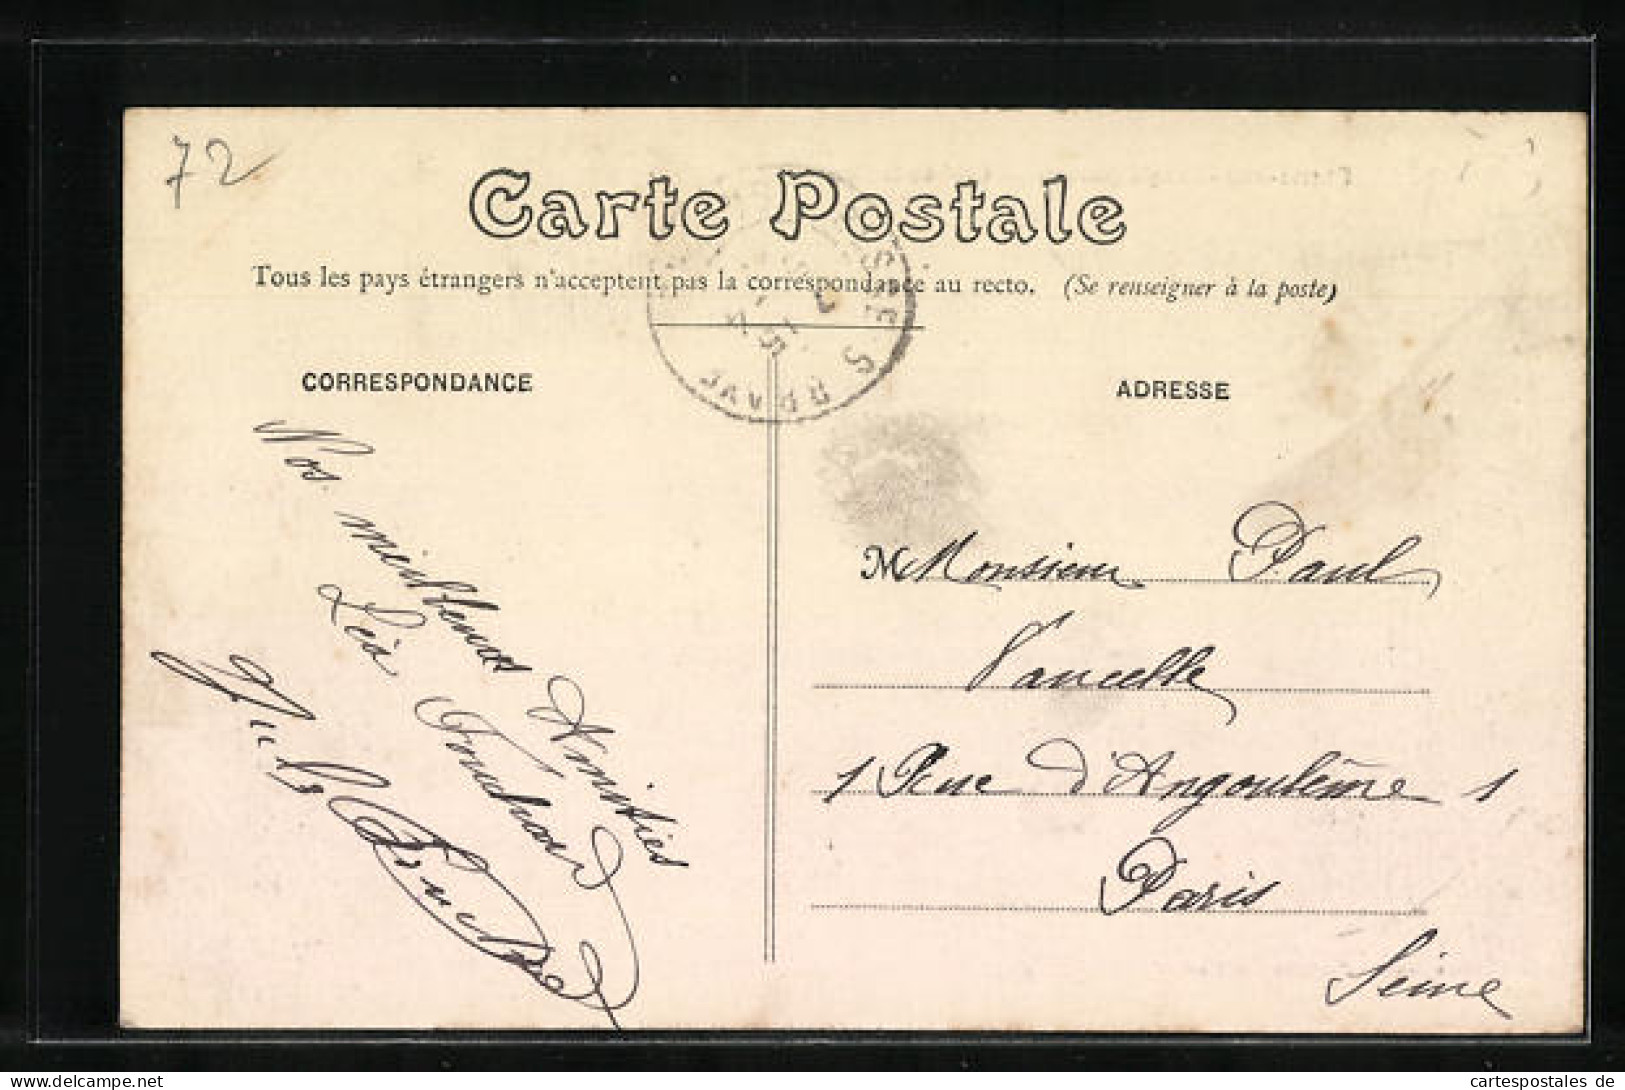 72
Carte Postale
Tous les pays étrangers n'acceptent pas la correspondance au recto. (Se renseigner à la poste)
CORRESPONDANCE
Nos meilleures Amitiés
Léa Fouchard
ADRESSE
M Monsieur Paul
Vaucelle
1 Rue d'Angoulême 1
Paris
Seine
cartespostales de